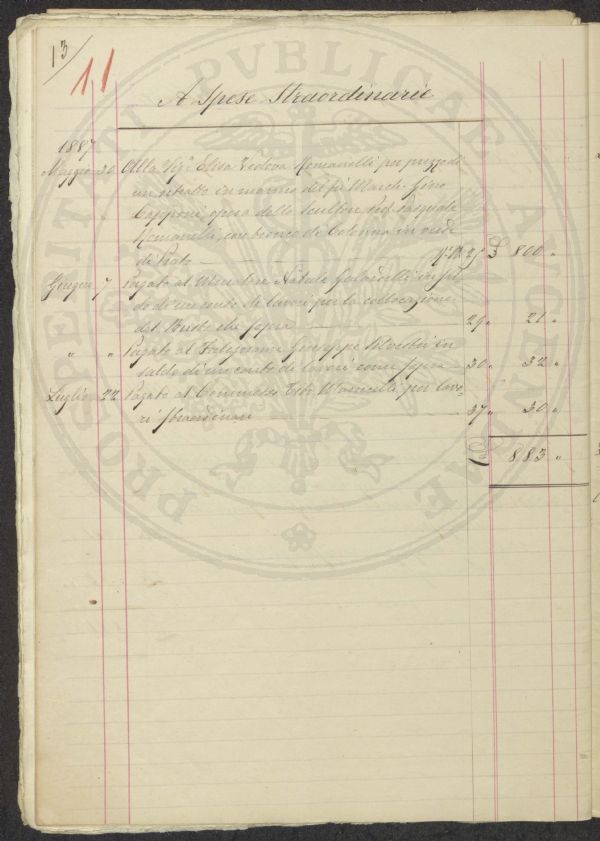 13
11
A Spese Straordinarie
1887
Maggio 30 Alla Sigª Elisa Vedova Romanelli per prezzo di
un ritratto in marmo del fu March. Gino
Capponi, opera dello Scultore Prof. Pasquale
Romanelli, con tronco di Colonna in
25 £ 800 "
Giugno 7 Pagato al Natale in sal
do di un conto di lavori per la collocazione
del Busto che sopra 29 " 21 "
" " Pagato al Falegname Giuseppe in
saldo di un conto di lavori come sopra 30 " 32 "
Luglio 22 Pagato al Commesso per lavo
ri straordinari 37 " 30 "
883 "
PROSPERITATI PVBLICAE AVGENDAE